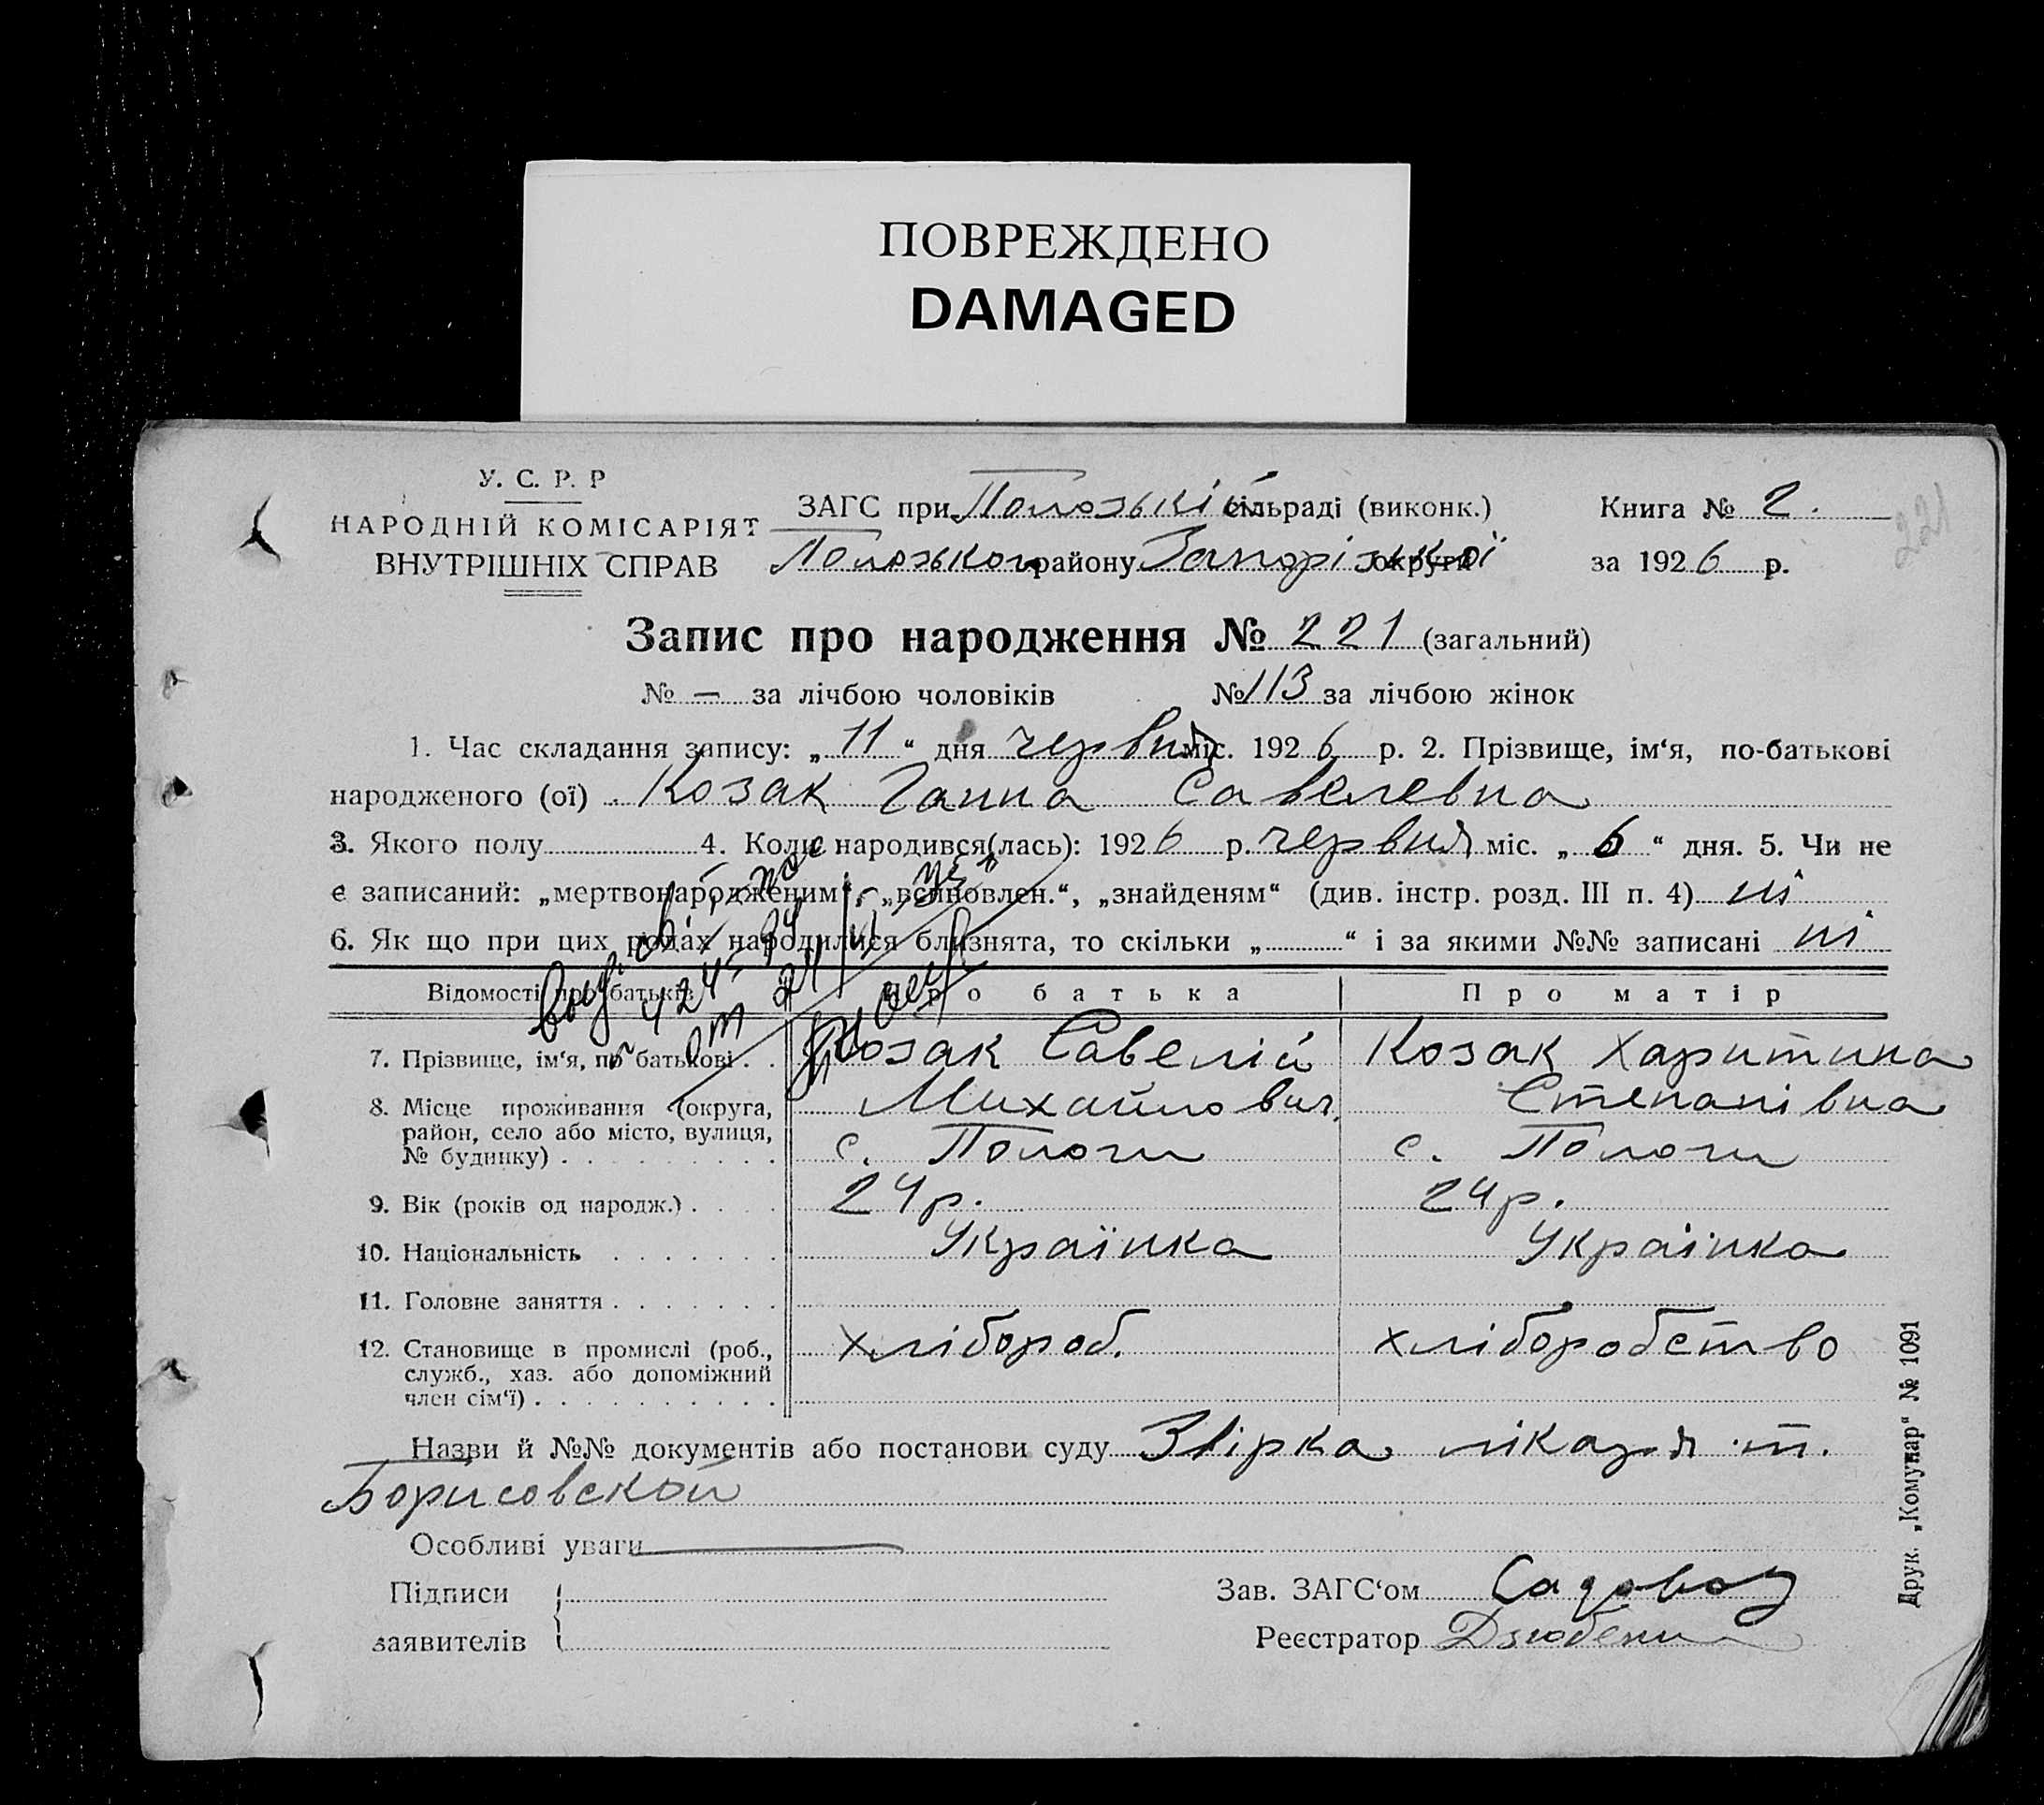 ПОВРЕЖДЕНО
DAMAGED
У. С. Р. Р
НАРОДНІЙ КОМІСАРІЯТ
ВНУТРІШНІХ СПРАВ
ЗАГС при Пологській сільраді (виконк.)
Пологського району Запорізької округи
Книга № 2.
за 1926 р.
221
Запис про народження № 221 (загальний)
№ — за лічбою чоловіків № 113 за лічбою жінок
1. Час складання запису: „ 11 “ дня червня міс. 1926 р. 2. Прізвище, ім‘я, по-батькові
народженого (ої) Козак Ганна Савелевна
3. Якого полу 4. Коли народився(лась): 1926 р. червня міс. „ 6 “ дня. 5. Чи не
є записаний: „мертвонародженим“, „всиновлен.“, „знайденям“ (див. інстр. розд. III п. 4) ні
6. Як що при цих родах народилися близнята, то скільки „ “ і за якими №№ записані ні
Відомості про батьків
Про батька
Про матір
7. Прізвище, ім‘я, по батькові . . Козак Савелій Козак Харитина
Михайлович Степанівна
8. Місце проживання (округа,
район, село або місто, вулиця,
№ будинку) . . . . . . . . . с. Пологи с. Пологи
9. Вік (років од народж.) . . . . 24 р. 24 р.
10. Національність . . . . . . . Українка Українка
11. Головне заняття . . . . . . .
12. Становище в промислі (роб., хлібороб. хліборобство
служб., хаз. або допоміжний
член сім‘ї) . . . . . . . . . .
Назви й №№ документів або постанови суду Звірка лікаря т.
Борисовской
Особливі уваги
Підписи
заявителів
Зав. ЗАГС‘ом
Реєстратор
Друк. „Комунар“ № 1091